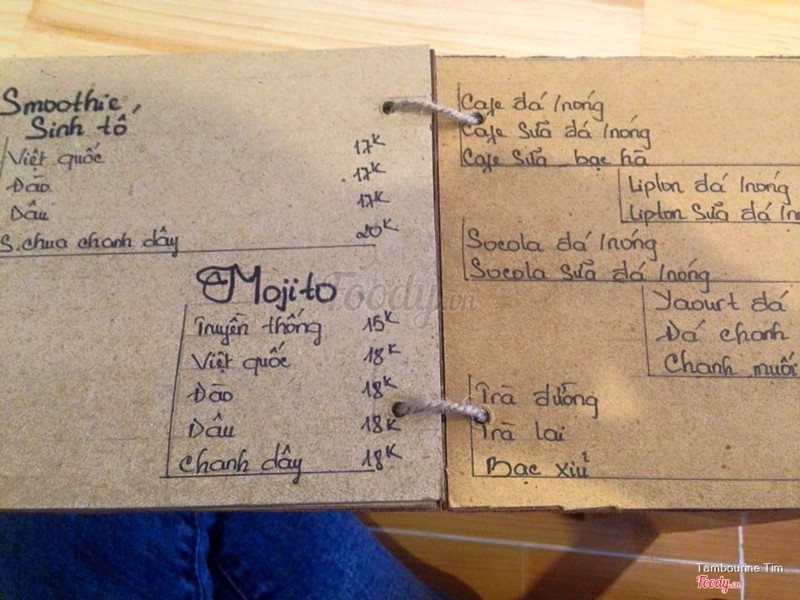 Smoothie,
Sinh tố
Việt quốc 17K
Đào 17K
Dâu 17K
S.chua chanh dây 20K
Mojito
Truyền thống 15K
Việt quốc 18K
Đào 18K
Dâu 18K
chanh dây 18K
Cafe đá / nóng
Cafe sữa đá / nóng
Cafe sữa bạc hà
Lipton đá / nóng
Lipton sữa đá / nóng
Socola đá / nóng
Socola sữa đá / nóng
Yaourt đá
Đá chanh
Chanh muối
Trà đường
Trà lài
Bạc xỉu
Foody.vn
Tambourine Tim
Foody.vn